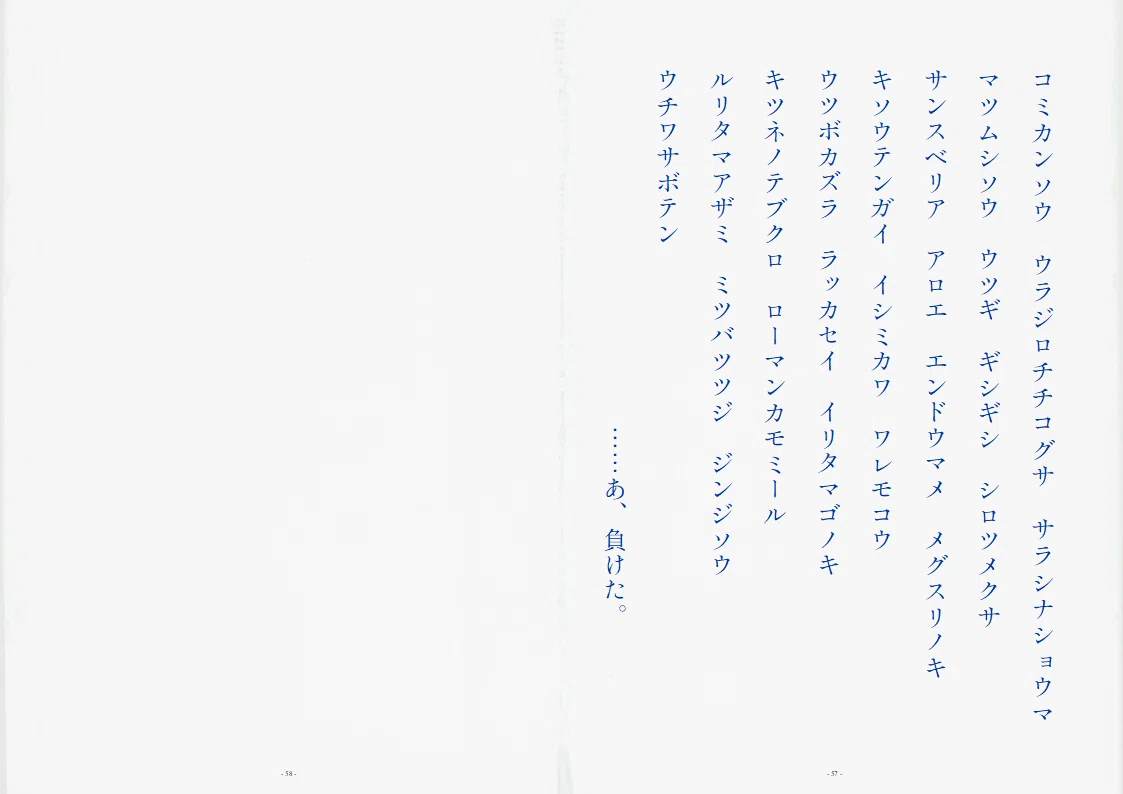 コミカンソウ　ウラジロチチコグサ　サラシナショウマ
マツムシソウ　ウツギ　ギシギシ　シロツメクサ
サンスベリア　アロエ　エンドウマメ　メグスリノキ
キソウテンガイ　イシミカワ　ワレモコウ
ウツボカズラ　ラッカセイ　イリタマゴノキ
キツネノテブクロ　ローマンカモミール
ルリタマアザミ　ミツバツツジ　ジンジソウ
ウチワサボテン
……あ、負けた。
- 57 -
- 58 -